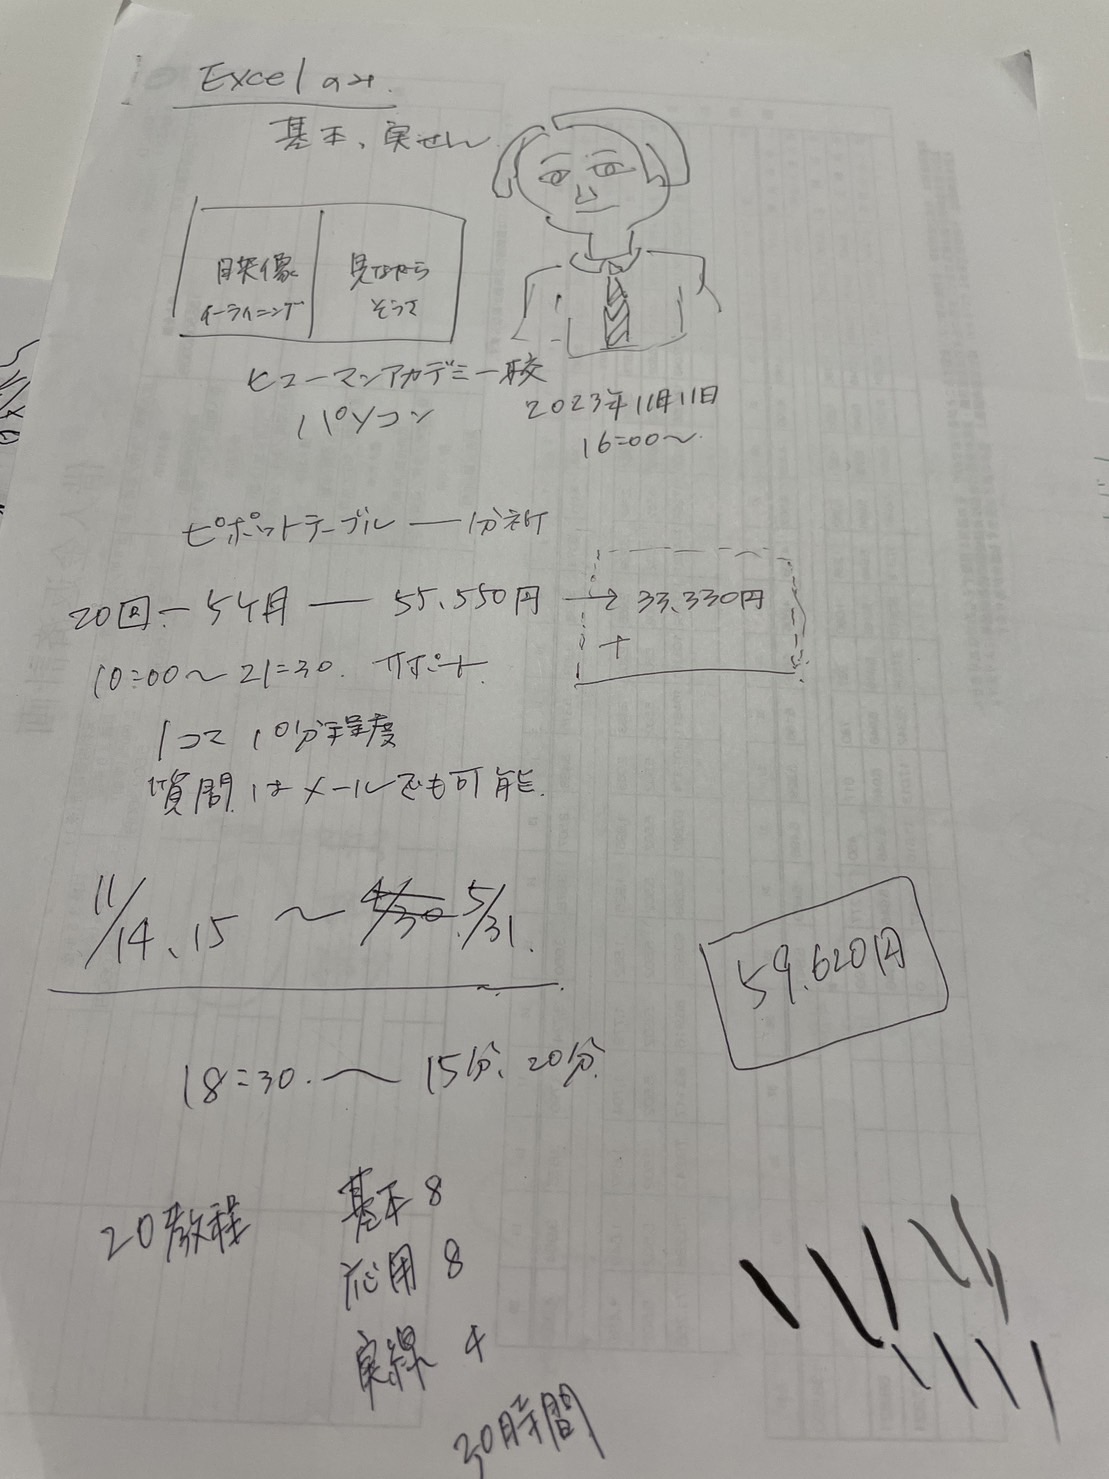 Excel のみ.
基本、実せん
映像
イーラーニング
見ながら
そうさ
ヒューマンアカデミー校
パソコン
2023年11月11日
16:00〜
ピボットテーブル ― 分析
20回 ― 5ヶ月 ― 55,550円 → 33,330円
+
10:00〜21:30. サポート.
1コマ 10分程度
質問はメールでも可能.
11/14、15 〜 4/30 5/31.
59,620円
18:30.〜 15分、20分
20教程
基本 8
応用 8
実線 4
30時間